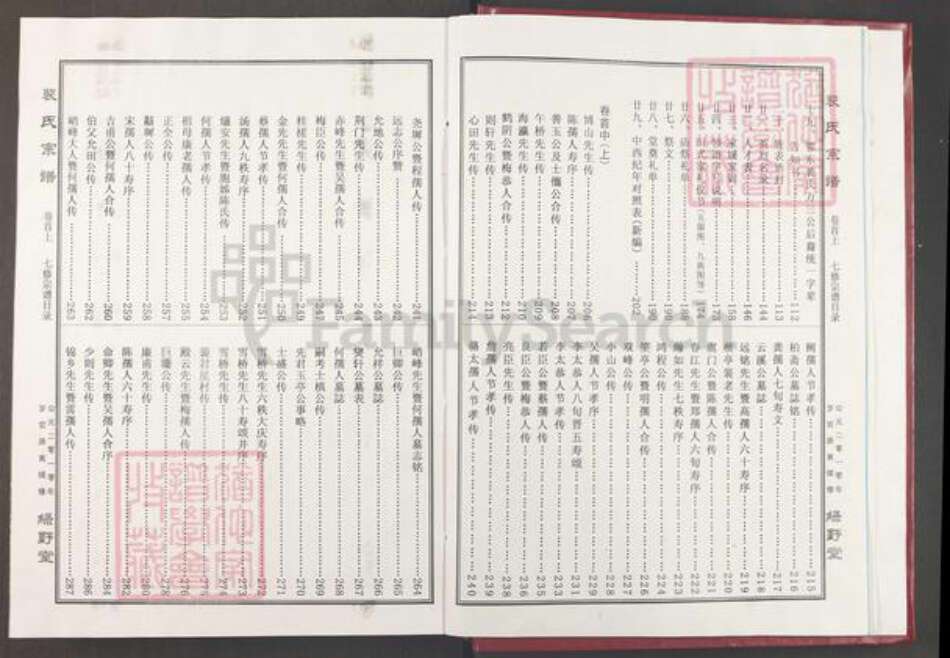 裴氏宗谱
卷首上
七修宗谱目录
绿野堂
112
113
144
146
廿三、
158
廿四、
173
174
廿六、
188
廿七、祭文
190
廿八、堂奠礼单
198
廿九、中西纪年对照表(新编) 202
卷首中(上)
博山先生传 206
陈孺人寿序 207
善玉公及士儋公合传 208
午桥先生传 209
海瀛先生传 210
鹤阴公暨梅恭人合传 212
则轩先生传 213
心田先生传 214
阙孺人节孝传 215
柏斋公墓誌铭 216
龚孺人七旬寿文 217
云溪公墓誌 218
远铭先生暨高孺人六十寿序 219
樾亭裴老先生传 220
春江先生暨郑孺人六旬寿序 221
南门公暨陈孺人合传 222
瀚如先生七秩寿序 223
鸿程公传 224
策亭公暨明孺人合传 226
双峰公传 227
小山公传 228
吴孺人节孝序 229
李太恭人八旬晋五寿颂 231
李太恭人节孝传 233
若臣公暨蔡孺人传 235
良臣公暨梅恭人传 236
亮臣先生传 238
詹孺人节孝传 239
骆太孺人节孝传 240
尧墀公暨程孺人传 241
远志公序赞 242
允地公传 243
荆门先生传 244
赤峰先生暨吴孺人合传 245
梅臣公传 246
桂槎先生传 249
金先先生暨何孺人合传 250
蔡孺人节孝传 251
汤孺人九秩寿序 252
燔安先生暨胞姊陈氏传 253
何孺人节孝传 254
祖母康老孺人传 255
正全公传 257
黻墀公传 258
宋孺人八十寿序 259
吉甫公暨何孺人合传 260
伯父允田公传 262
峭峰大人暨何孺人传 263
峭峰先生暨何孺人墓志铭 264
巨卿公传 265
允梓公墓誌 266
燮轩公墓表 267
何孺人墓誌 268
嗣考士槙公传 269
先君玉亭公事略 270
士盛公传 271
雪桥先生六秩大庆寿序 272
雪桥先生八十寿颂并序 273
雪桥先生传 274
275
殿云先生暨梅孺人传 276
巨珊公传
康甫先生传 280
陈孺人六十寿序 282
命卿先生暨吴孺人合序 284
少则先生传 286
锦乡先生暨雷孺人传 287
裴氏宗谱
卷首上
七修宗谱目录
绿野堂
FamilySearch